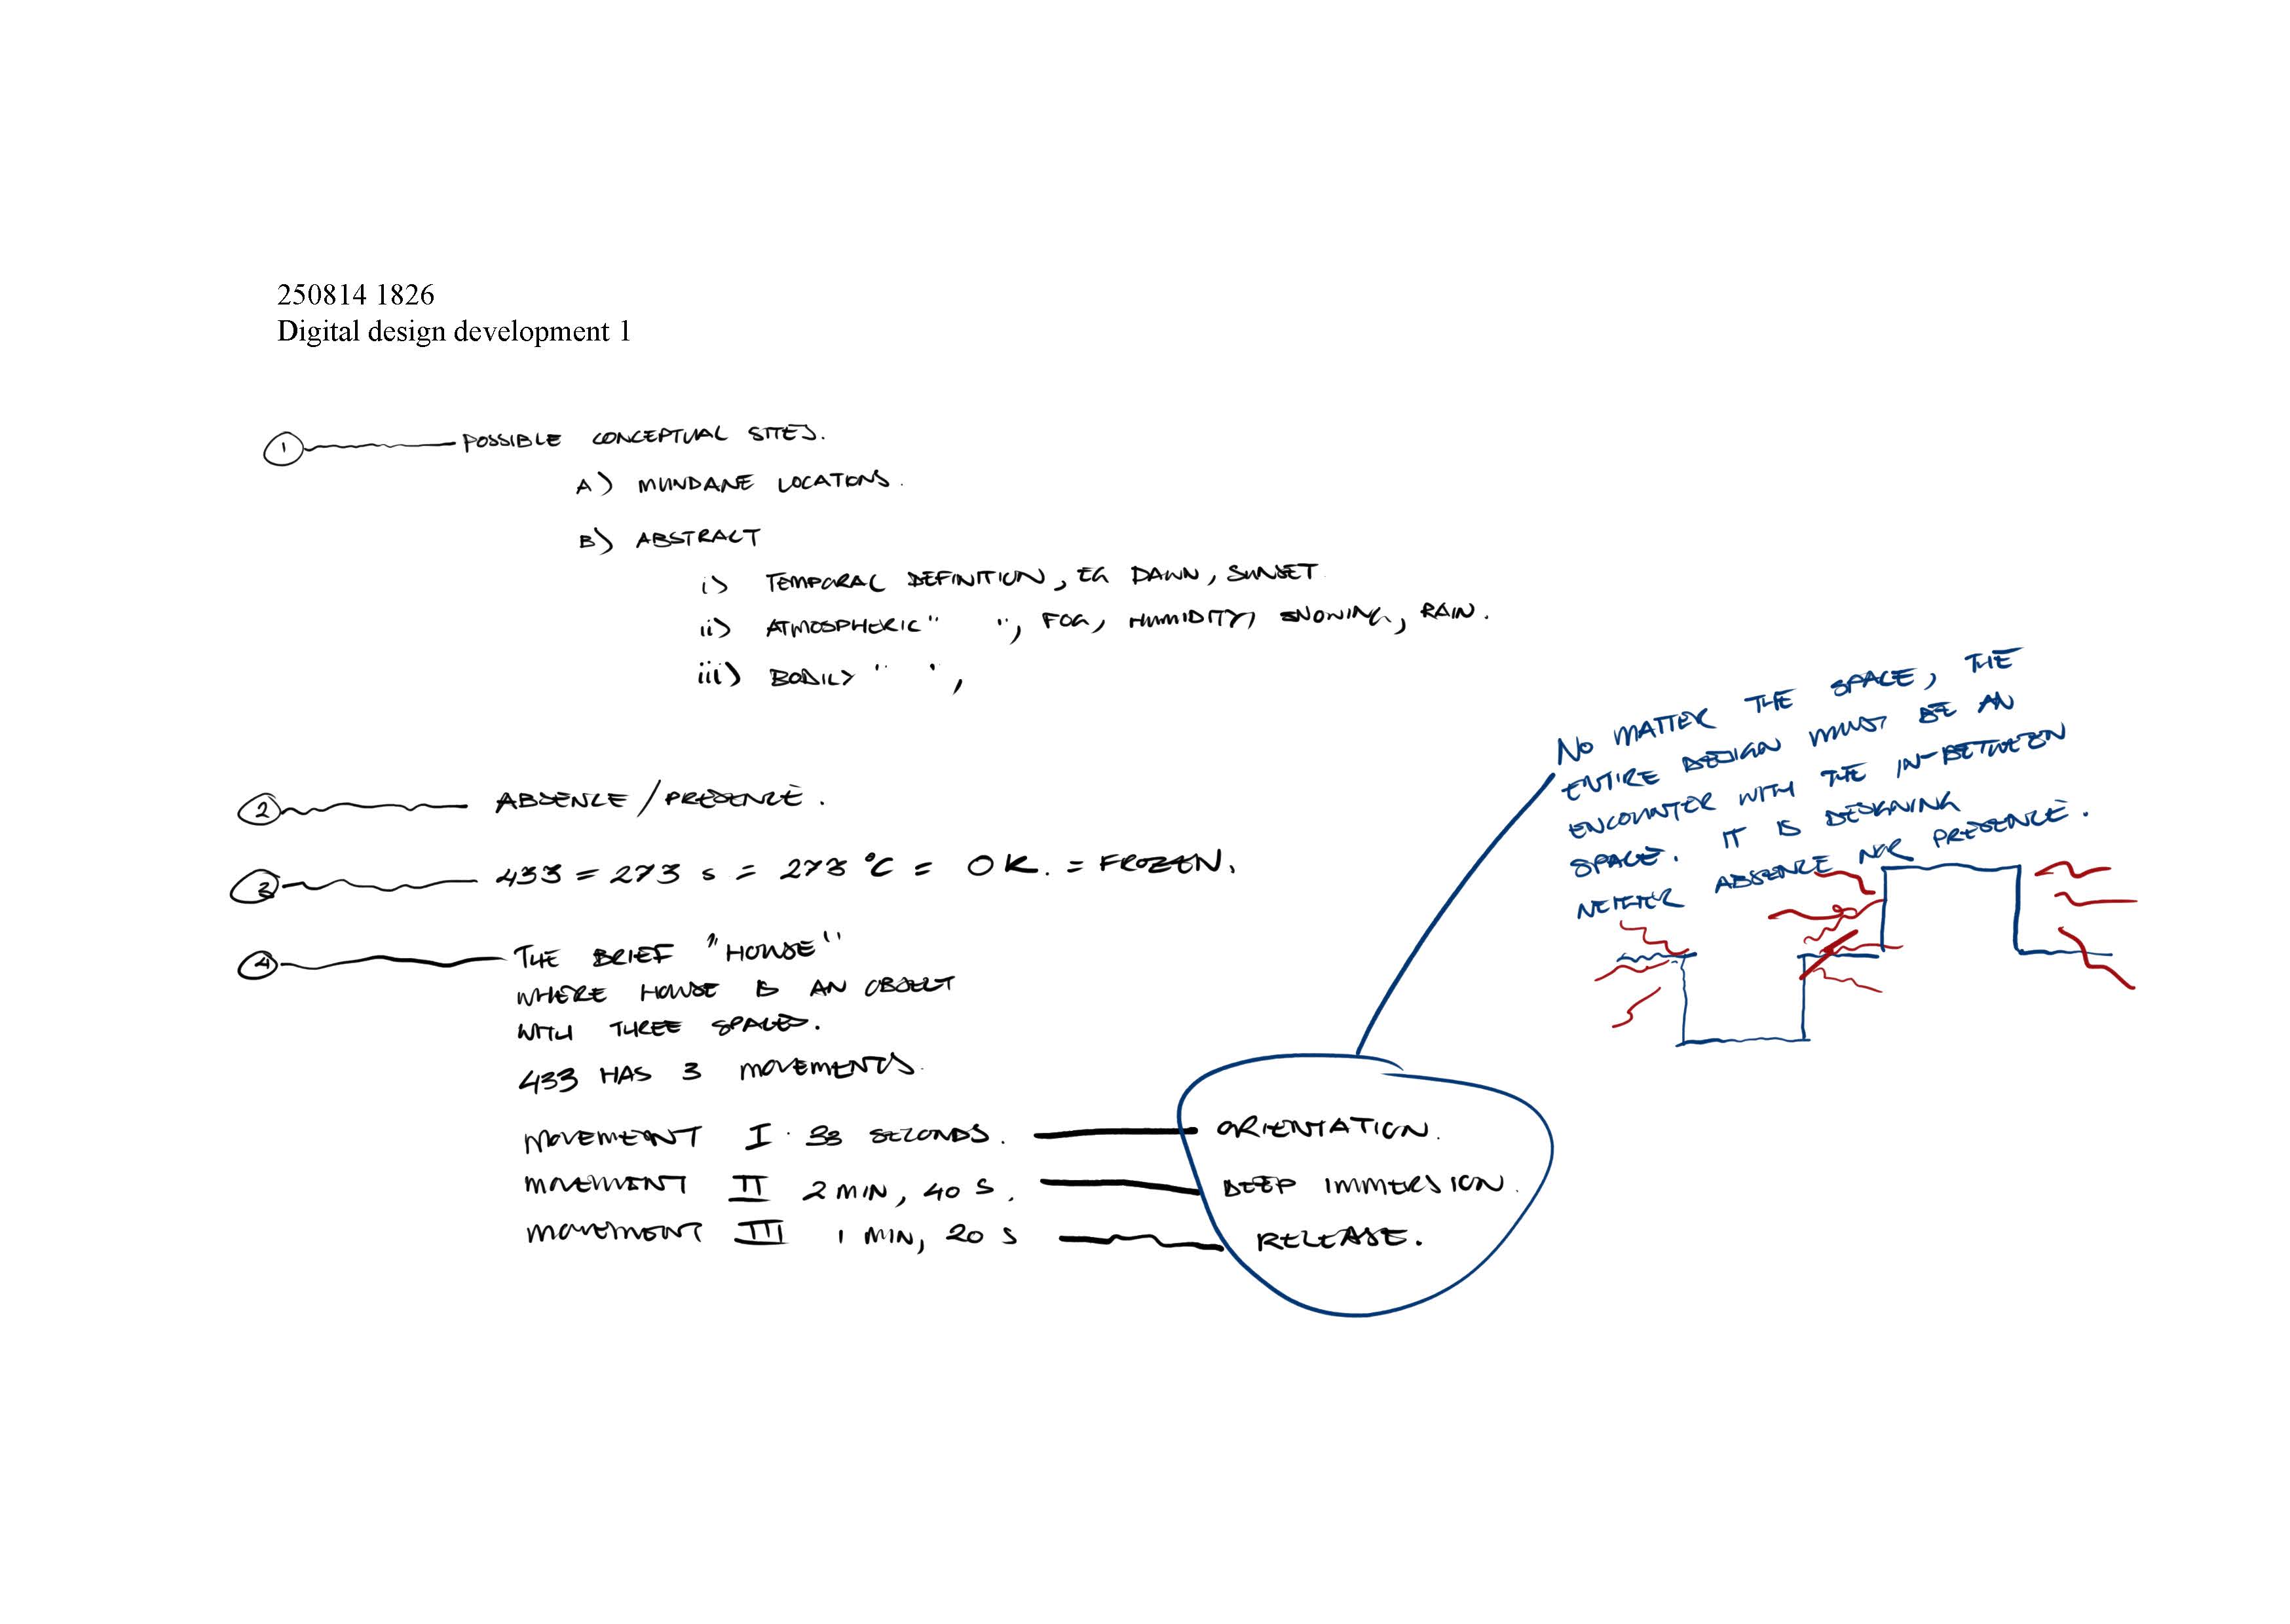 250814 1826
Digital design development 1
1 POSSIBLE CONCEPTUAL SITES.
A) MUNDANE LOCATIONS.
B) ABSTRACT
i) TEMPORAL DEFINITION, EG DAWN, SUNSET
ii) ATMOSPHERIC " ", FOG, HUMIDITY, SNOWING, RAIN.
iii) BODILY " ",
2 ABSENCE / PRESENCE.
3 433 = 273 s = 273 °C = 0 K. = FROZEN.
4 THE BRIEF "HOUSE"
WHERE HOUSE IS AN OBJECT
WITH THREE SPACES.
433 HAS 3 MOVEMENTS.
MOVEMEONT I · 33 SECONDS. ORIENTATION.
MOVEMENT II 2 MIN, 40 S. DEEP IMMERSION.
MOVEMENT III 1 MIN, 20 S RELEASE.
NO MATTER THE SPACE, THE
ENTIRE DESIGN MUST BE AN
ENCOUNTER WITH THE IN-BETWEEN
SPACE. IT IS DESIGNING
NEITHER ABSENCE NOR PRESENCE.